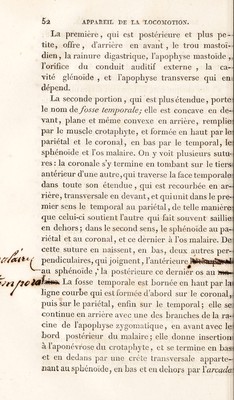 52 APPAREIL DE LA LOCOMOTION.
La première, qui est postérieure et plus pe-
tite, offre, d'arrière en avant, le trou mastoï-
dien, la rainure digastrique, l'apophyse mastoïde,
l'orifice du conduit auditif externe, la ca-
vité glénoïde, et l'apophyse transverse qui en
dépend.
La seconde portion, qui est plus étendue, porte
le nom de fosse temporale; elle est concave en de-
vant, plane et même convexe en arrière, remplie
par le muscle crotaphyte, et formée en haut par le
pariétal et le coronal, en bas par le temporal, le
sphénoïde et l'os malaire. On y voit plusieurs sutu-
res: la coronale s'y termine en tombant sur le tiers
antérieur d'une autre, qui traverse la face temporale
dans toute son étendue, qui est recourbée en ar-
rière, transversale en devant, et qui unit dans le pre-
mier sens le temporal au pariétal, de telle manière
que celui-ci soutient l'autre qui fait souvent saillie
en dehors; dans le second sens, le sphénoïde au pa-
riétal et au coronal, et ce dernier à l'os malaire. De
cette suture en naissent, en bas, deux autres per-
pendiculaires, qui joignent, l'antérieure
au sphénoïde, la postérieure ce dernier os au
temporal La fosse temporale est bornée en haut par la
ligne courbe qui est formée d'abord sur le coronal,
puis sur le pariétal, enfin sur le temporal; elle se
continue en arrière avec une des branches de la ra-
cine de l'apophyse zygomatique, en avant avec le
bord postérieur du malaire; elle donne insertion
à l'aponévrose du crotaphyte, et se termine en bas
et en dedans par une crête transversale apparte-
nant au sphénoïde, en bas et en dehors par l'arcade